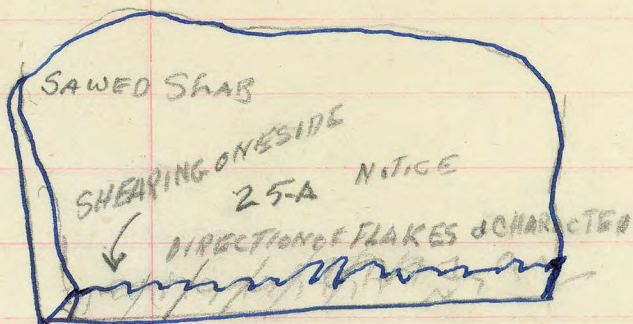 SAWED SLAB
SHEARING ONE SIDE
25-A NOTICE
DIRECTION OF FLAKES & CHARACTER